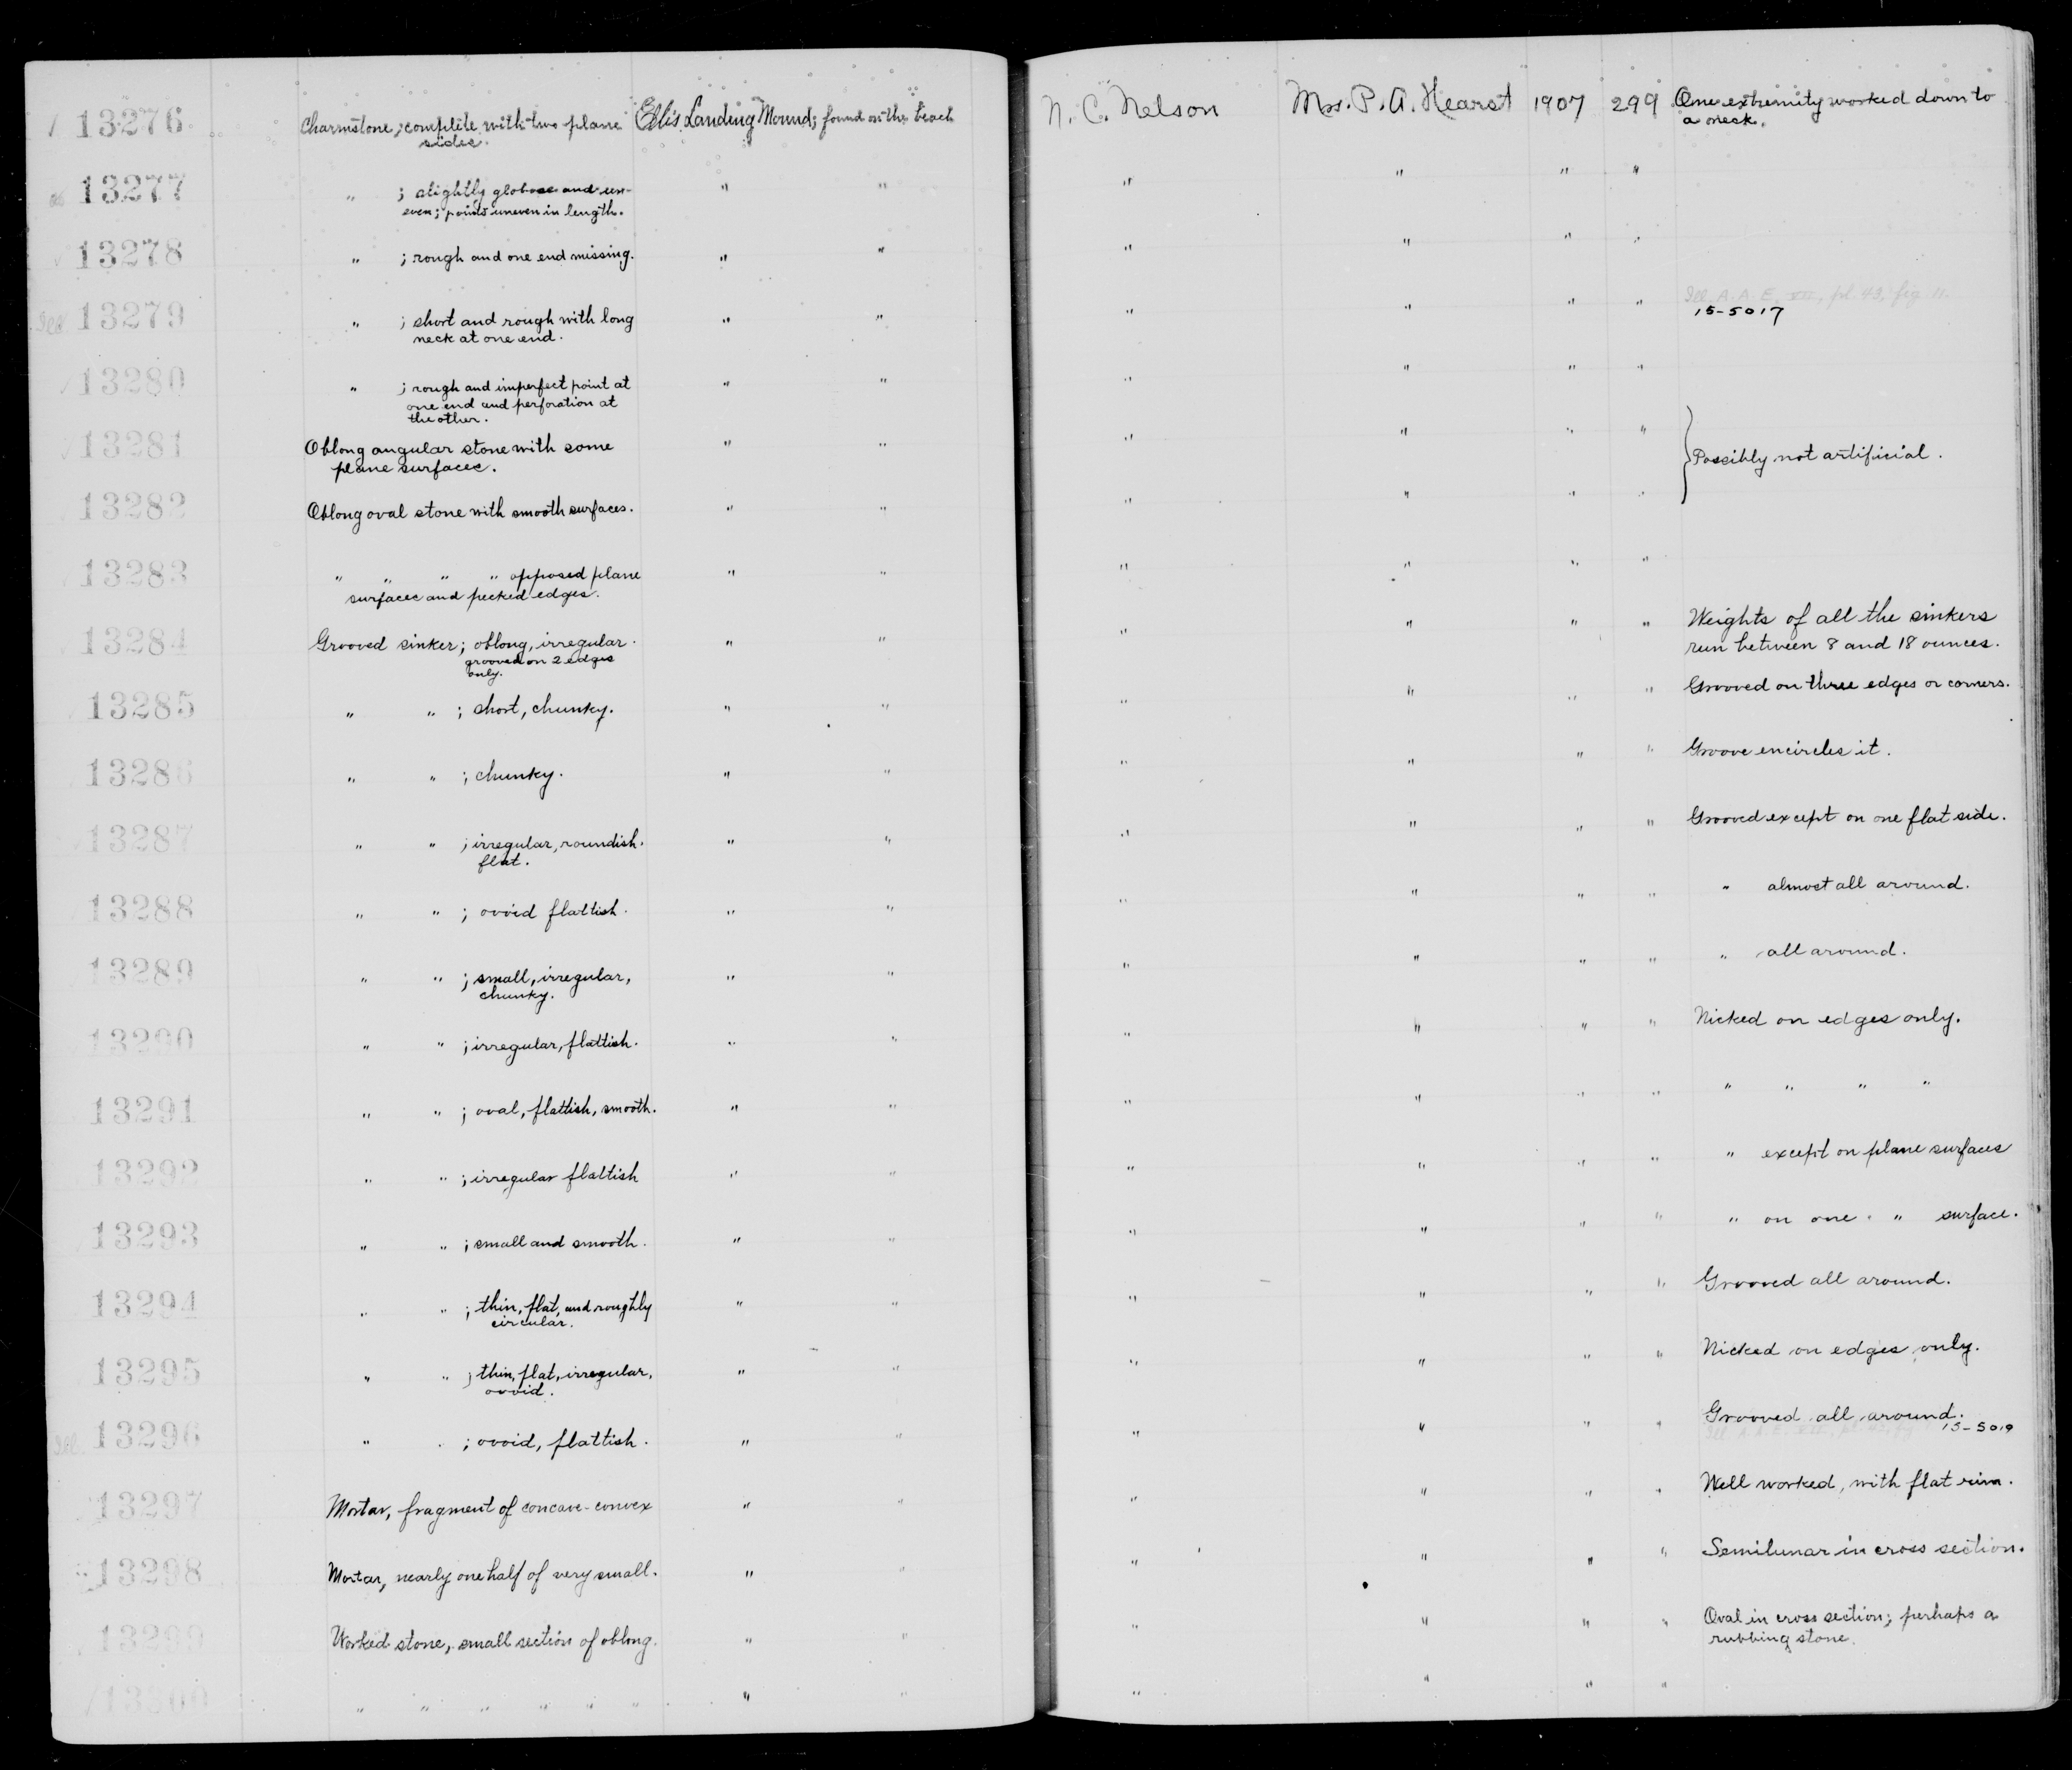 13276 Charmstone; complete with two plane Ellis Landing Mound; found on the beach N. C. Nelson Mrs. P. A. Hearst 1907 299 One extremity worked down to
sides. a neck.
13277 " ; slightly globose and un- " " " " " "
even; points uneven in length.
13278 " ; rough and one end missing. " " " " " "
Ill 13279 " ; short and rough with long " " " " " " Ill. A. A. E. VII, pl. 43, fig. 11.
neck at one end. 15-5017
13280 " ; rough and imperfect point at " " " " " "
one end and perforation at
the other.
13281 Oblong angular stone with some " " " " " " } Possibly not artificial.
plane surfaces.
13282 Oblong oval stone with smooth surfaces. " " " " " "
13283 " " " " opposed plane " " " " " "
surfaces and pecked edges.
13284 Grooved sinker; oblong, irregular. " " " " " " Weights of all the sinkers
grooved on 2 edges run between 8 and 18 ounces.
only.
13285 " " ; short, chunky. " " " " " " Grooved on three edges or corners.
13286 " " ; chunky. " " " " " " Groove encircles it.
13287 " " ; irregular, roundish. " " " " " " Grooved except on one flat side.
flat.
13288 " " ; ovoid flattish. " " " " " " " almost all around.
13289 " " ; small, irregular, " " " " " " " all around.
chunky.
13290 " " ; irregular, flattish. " " " " " " Nicked on edges only.
13291 " " ; oval, flattish, smooth. " " " " " " " " " "
13292 " " ; irregular flattish " " " " " " " except on plane surfaces
13293 " " ; small and smooth. " " " " " " " on one " surface.
13294 " " ; thin, flat, and roughly " " " " " " Grooved all around.
circular.
13295 " " ; thin, flat, irregular, " " " " " " Nicked on edges only.
ovoid.
Ill 13296 " " ; ovoid, flattish. " " " " " " Grooved all around.
15-5019
13297 Mortar, fragment of concave-convex " " " " " " Well worked, with flat rim.
13298 Mortar, nearly one half of very small. " " " " " " Semilunar in cross section.
13299 Worked stone, small section of oblong. " " " " " " Oval in cross section; perhaps a
rubbing stone.
13300 " " " " " " " " " " " "